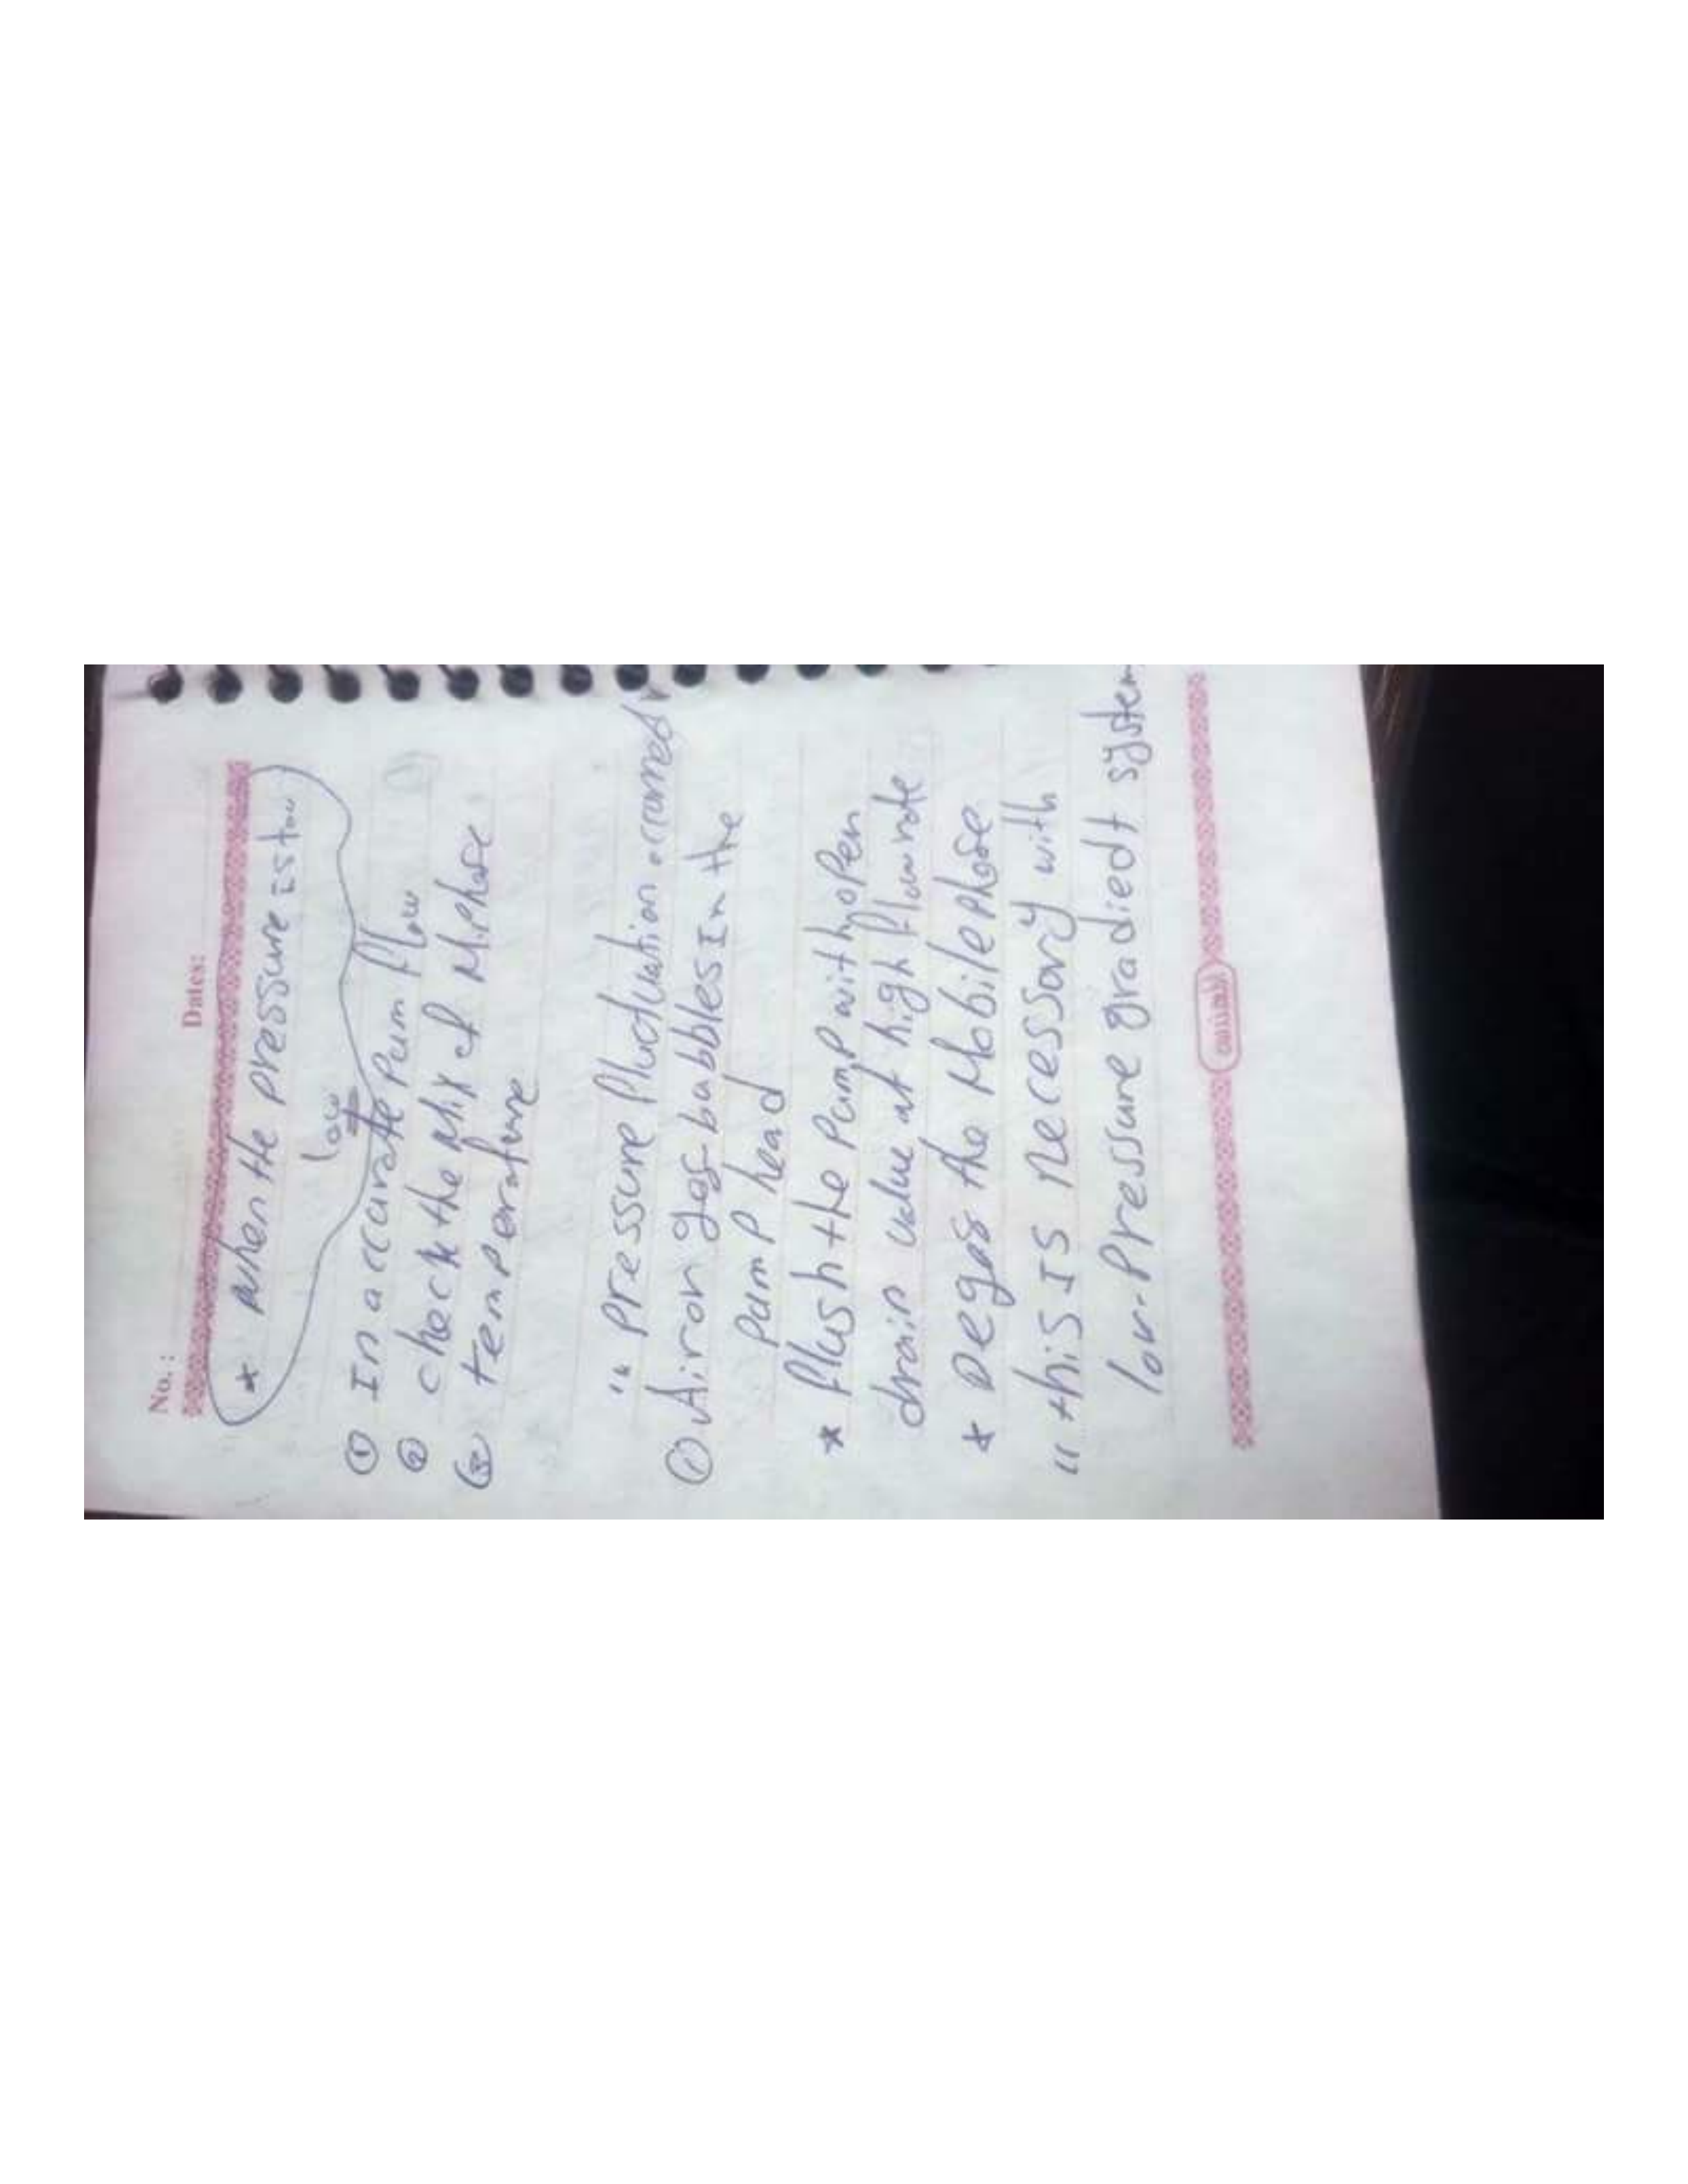 No.:
Date:
* when the pressure is too
low
① In accurate Pum flow
② check the Mix of M.phase
③ temperature
" pressure fluctuation.
① Air or gas bubbles In the
pump head
* flush the Pump with open
drain valve at high flow rate
* Degas the Mobile phase
" this Is necessary with
low-Pressure gradiedt system